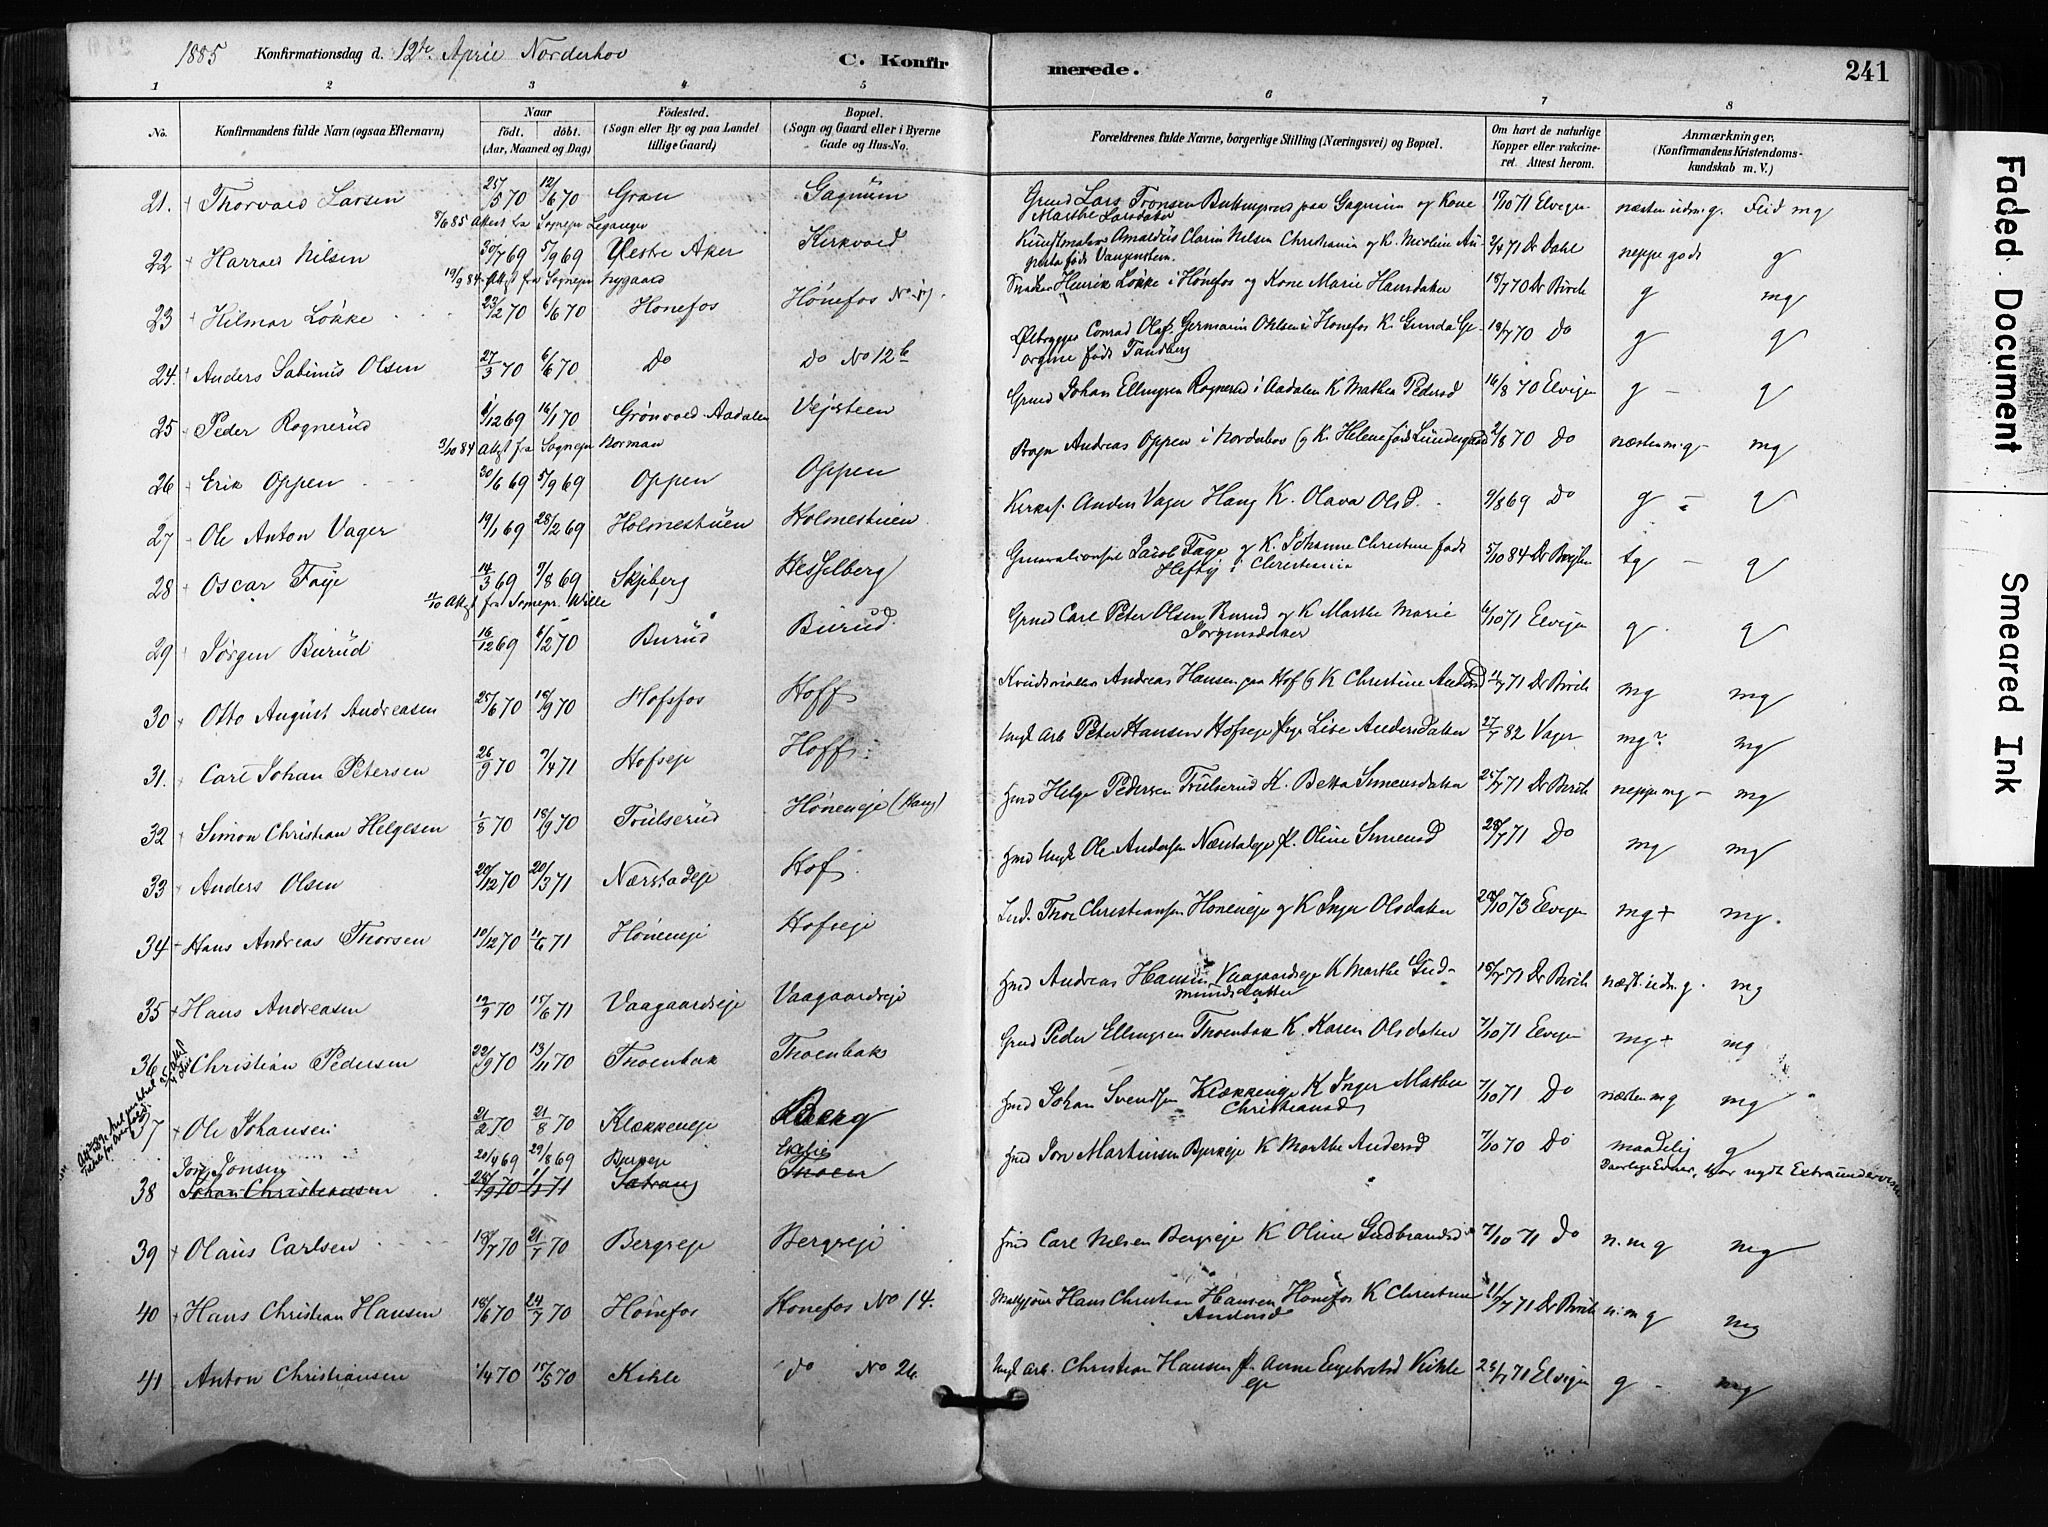 1885 Konfirmationsdag d. 12te April Norderhov C. Konfirmerede. 241
1 2 3 4 5 6 7 8
No. Konfirmandens fulde Navn (ogsaa Efternavn) Naar födt. döbt. (Aar, Maaned og Dag) Födested. (Sogn eller By og paa Landet tillige Gaard) Bopæl. (Sogn og Gaard eller i Byerne Gade og Hus-No. Forældrenes fulde Navne, borgerlige Stilling (Næringsvei) og Bopæl. Om havt de naturlige Kopper eller vakcineret. Attest herom. Anmærkninger. (Konfirmandens Kristendomskundskab m. V.)
21. Thorvald Larsen 25/5 70 12/6 70 Gran Gagnum Grmd Lars Tronsen paa Gagnum og Kone Marthe Larsdatter 17/10 71 Elvigen næsten udm. g. Flid mg
8/6 85 Attest fra Sognepr Leganger
22 Harald Nilsen 30/7 69 5/9 69 Vestre Aker Kirkvold Kunstmaler Amaldus Clarin Nilsen Christiania og K. Nicoline Augusta født Vangensten. 2/4 71 Dr Dahl neppe godt g
19/9 84 Attest fra Sognepr Nygaard
23 Hilmar Løkke 23/2 70 6/6 70 Honefos Hönefos No 17. Snedker Henrik Løkke i Hønefos og Kone Marie Hansdatter 18/7 70 Dr Birch g mg
24. Anders Sabinus Olsen 27/3 70 6/6 70 Do Do No 12 b Ølbrygger Conrad Olaf Germanus Ohlsen i Honefos K. Gunda Georgine født Tandberg 18/7 70 Do g g
25 Peder Rognerud 1/12 69 16/1 70 Grønvold Aadalen Vejsteen Grmd Johan Ellingsen Rognerud i Aadalen K Mathea Pedersd 16/8 70 Elvigen g - g
3/10 84 Attest fra Sognepr Norman
26 Erik Oppen 30/6 69 5/9 69 Oppen Oppen Andreas Oppen i Norderhov og K. Helene født Lundesgaard 2/8 70 Do næsten mg - mg
27 Ole Anton Vager 19/1 69 28/2 69 Holmestuen Holmestuen. Kirkes. Anders Vager Haug K. Olava Olsd. 9/8 69 Do g - g
28 Oscar Faye 14/3 69 9/8 69 Skjeberg Hesselberg Generalkonsul Jacob Faye og K. Johanne Christine født Heftÿ i Christiania 5/10 84 Dr tg - g
Attest fra Sognepr. Wille
29 Jørgen Burud 16/12 69 6/2 70 Burud Burud Grmd Carl Peter Olsen Burud og K Marthe Marie Jørgensdatter 6/10 71 Elvigen g. g
30 Otto August Andreasen 25/6 70 18/9 70 Hofsfos Hoff Andreas Hansen paa Hof og K Christine Andersd 11/7 71 Dr Birch mg mg
31. Carl Johan Petersen 26/9 70 9/4 71 Hofseje Hoff. Ungk arb Peter Hansen Hofseje Pige Lise Andersdatter 27/7 82 Vager mg? mg
32 Simon Christian Helgesen 1/8 70 18/9 70 Trulserud Höneneje (Haug) Hmd Helge Pedersen Trulserud K. Betta Simensdatter 25/7 71 Dr Birch neppe mg - mg
33 Anders Olsen 20/12 70 20/3 71 Nærstadeje Hof Hmd Ungk Ole Andersen Næstadeje fl. Oline Simensd 28/7 71 Do mg mg
34 Hans Andreas Thorsen 10/12 70 11/6 71 Höneneje Hofseje Ind. Thor Christiansen Høneneje og K Inger Olsdatter 28/10 73 Elvigen mg + mg.
35 Hans Andreasen 12/9 70 15/6 71 Vaagaardseje Vaagaardseje Hmd Andreas Hansen Vaagaardseje K Marthe Gudmundsdatter 15/7 71 Dr Birch næst. udm. g. mg
36 Christian Pedersen 22/9 70 13/11 70 Thoenbak Thoenbak Grmd Peder Ellingsen Thoenbak K. Karen Olsdatter 7/10 71 Elvigen mg + mg
37 Ole Johansen 21/2 70 21/8 70 Klækkeneje Berg Hmd Johan Svendsen Klækkeneje K Inger Mathea Christiansd 7/10 71 Do næsten mg mg
38 Jon Jonsen 20/4 69 29/8 69 Bjerkeje Hmd Jon Martinsen Bjerkeje K Marthe Andersd 7/10 70 Do maadelig g
Johan Christiansen 28/9 70 1/1 71 Sætrang Thoen
39 Olaus Carlsen 18/7 70 21/7 70 Bergseje Bergseje Hmd Carl Nilsen Bergseje K Oline Gudbrandsd 7/10 71 Do n. mg mg
40 Hans Christian Hansen 18/6 70 24/7 70 Hönefos Honefos No 14. Hans Christian Hansen Honefos K Christine Andersd 11/7 71 Dr Birch n. m g mg
41 Anton Christiansen 1/4 70 15/5 70 Kihle do No 26 Ungk arb. Christian Hansen fl. Anne Engebretsd Kihle eje 25/7 71 Elvigen g - mg
Faded Document
Smeared Ink